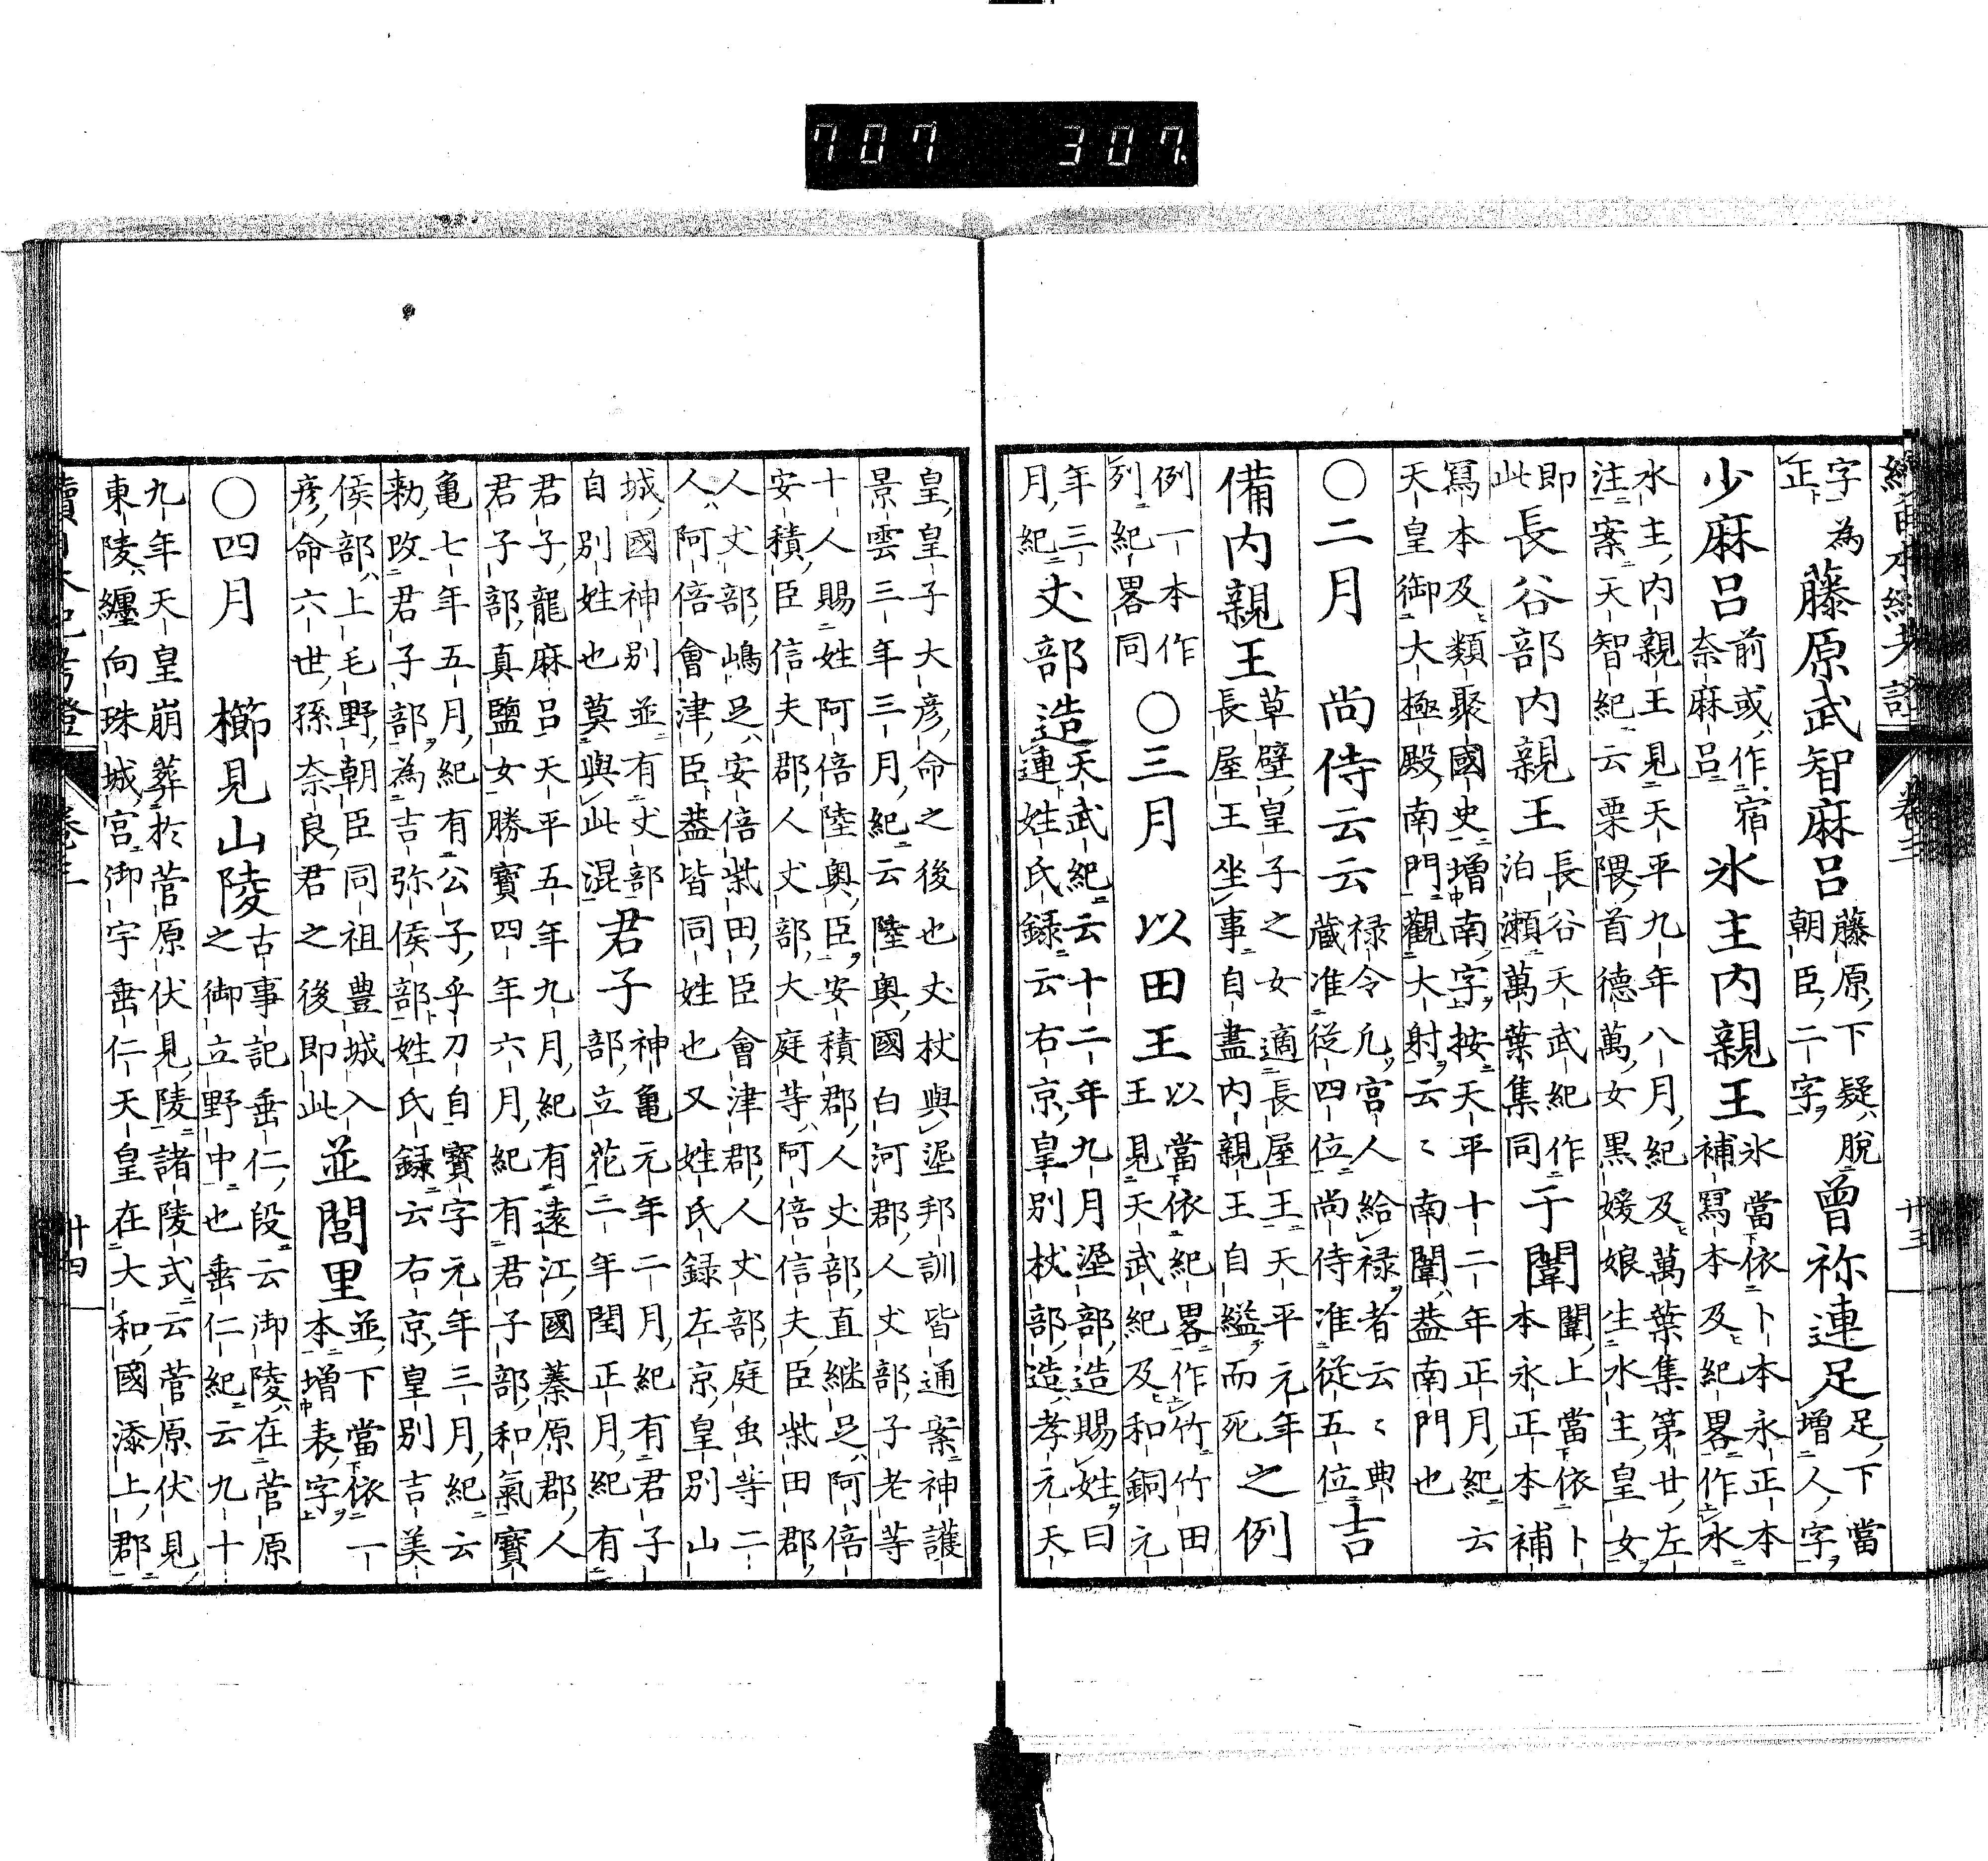 707 307.
字為
正
藤原武智麻呂
藤原下疑脱
朝臣二字
曾祢連足
足下當
増人字
少麻呂
前或作宿
奈麻呂
氷主内親王
氷當依卜本永正本
補冩本及紀畧作水
水主内親王見天平九年八月紀及萬葉集第廿左
注案天智紀云栗隈首德萬女黒媛娘生水主皇女
即
此
長谷部内親王
長谷天武紀作
泊瀬萬葉集同
于闈
闈上當依卜
本永正本補
冩本及類聚國史増南字按天平十二年正月紀云
天皇御大極殿南門觀大射云〻南闈蓋南門也
〇二月
尚侍云云
禄令凡宮人給禄者云〻典
藏准從四位尚侍准從五位
吉
備内親王
草壁皇子之女適長屋王天平元年
長屋王坐事自盡内親王自縊而死
之例
例一本作
列紀畧同
〇三月
以田王
以當依紀畧作竹竹田
王見天武紀及和銅元
年三
月紀
丈部造
天武紀云十二年九月埿部造賜姓曰
連姓氏録云右京皇別杖部造孝元天
皇皇子大彦命之後也丈杖與埿邦訓皆通案神護
景雲三年三月紀云陸奥國白河郡人丈部子老等
十人賜姓阿倍陸奥臣安積郡人丈部直継足阿倍
安積臣信夫郡人丈部大庭等阿倍信夫臣柴田郡
人丈部嶋足安倍柴田臣會津郡人丈部庭虫等二
人阿倍會津臣蓋皆同姓也又姓氏録左京皇別山
城國神別並有丈部
自別姓也莫與此混
君子
神亀元年二月紀有君子
部立花二年閏正月紀有
君子龍麻呂天平五年九月紀有遠江國蓁原郡人
君子部真鹽女勝寳四年六月紀有君子部和氣寳
亀七年五月紀有公子乎刀自寳字元年三月紀云
勅改君子部為吉弥侯部姓氏録云右京皇別吉美
侯部上毛野朝臣同祖豊城入
彦命六世孫奈良君之後即此
並閭里
並下當依一
本増表字
〇四月
櫛見山陵
古事記垂仁段云御陵在菅原
之御立野中也垂仁紀云九十
九年天皇崩葬於菅原伏見陵諸陵式云菅原伏見
東陵纏向珠城宮御宇垂仁天皇在大和國添上郡